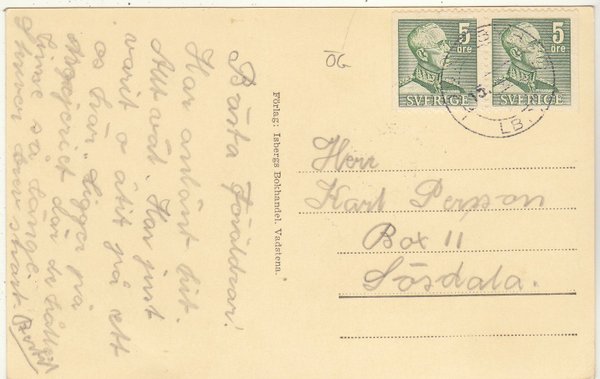 Bästa Föräldrar!
Har anlänt hit.
Allt väl. Har just
varit o ätit på ett
os här. Ligga på
där de
timme så länge.
brev snart.
ÖG
Förlag: Isbergs Bokhandel, Vadstena.
5 öre
SVERIGE
5 öre
SVERIGE
15
LB
Herr
Karl Person
Box 11
Sösdala.